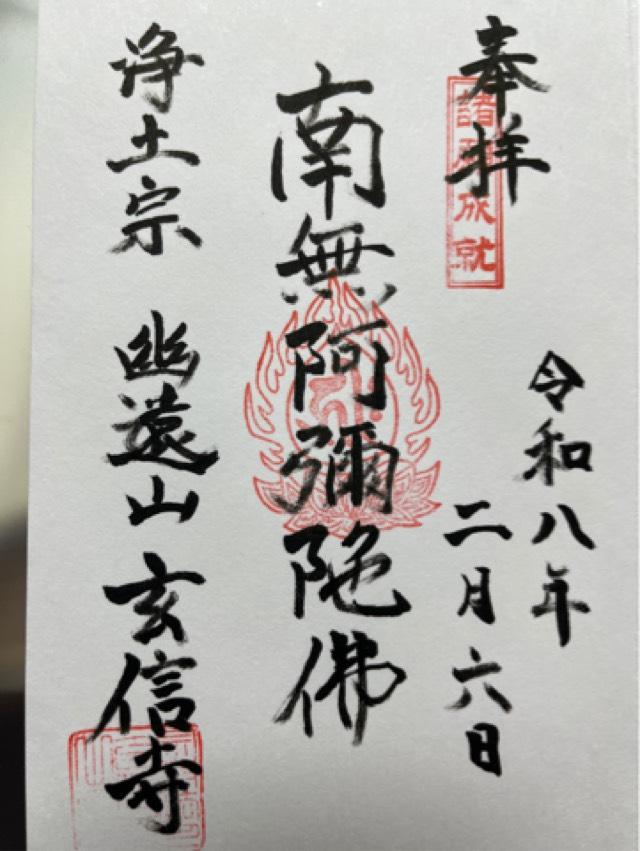 奉拝
諸願成就
令和八年
二月六日
南無阿彌陀佛
浄土宗 幽遠山 玄信寺